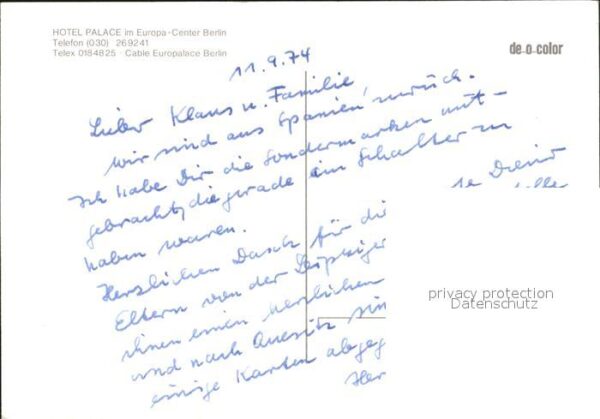 HOTEL PALACE im Europa-Center Berlin
Telefon (030) 269241
Telex 0184825 Cable Europalace Berlin
de-o-color
11.9.74
Lieber Klaus u. Familie,
wir sind aus Spanien zurück.
Ich habe Dir die Sondermarken mit-
gebracht, die gerade am Schalter zu
haben waren.
Herzlichen Dank für die
Eltern von der Leipziger
ihnen einen herzlichen
und nach
einige Karten abgeg
Her
privacy protection
Datenschutz